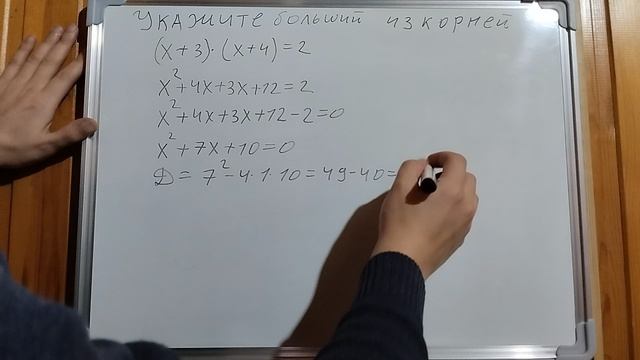 Укажите больший из корней
(x+3)·(x+4)=2
x²+4x+3x+12=2
x²+4x+3x+12-2=0
x²+7x+10=0
D=7²-4·1·10=49-40=